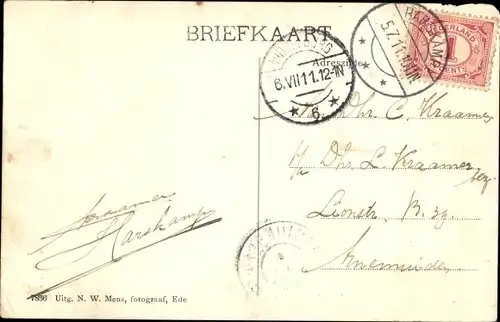 BRIEFKAART
Adreszijde
HARSKAMP
5.7.11.10-11N
6.VII11.12-1N
6
NEDERLAND
1
CENT
Dhr. C. Kraamer
p/a Dhr. L. Kraamer
bez.
B.
Arnemuiden
Kraamer
Harskamp
7836 Uitg. N. W. Mens, fotograaf, Ede